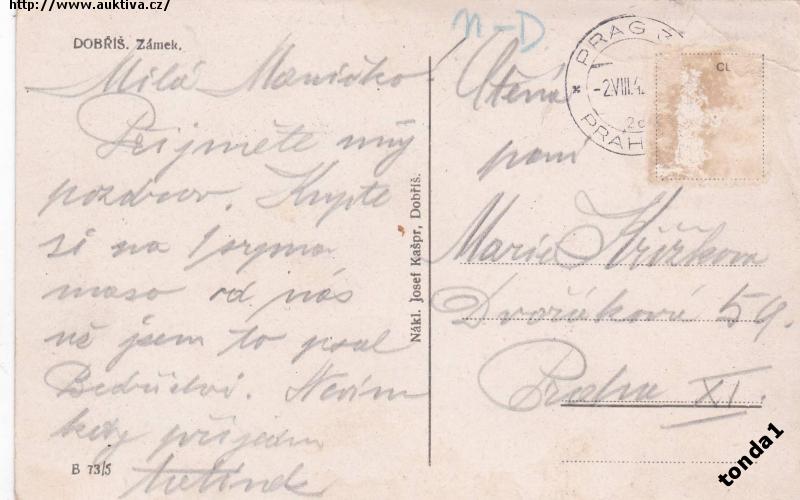 http://www.auktiva.cz/
DOBŘÍŠ. Zámek.
Milá Maničko
Přijměte můj
pozdrav. Kupte
si na
maso od nás
jsem to psal
Nevím
kdy přijedu
B 73/5
Nákl. Josef Kašpr, Dobříš.
N-D
PRAG 7
-2.VIII.4
PRAH
CL
Ctěná
paní
Marie Křížkova
Dvořákova 59.
Praha XI.
tonda1